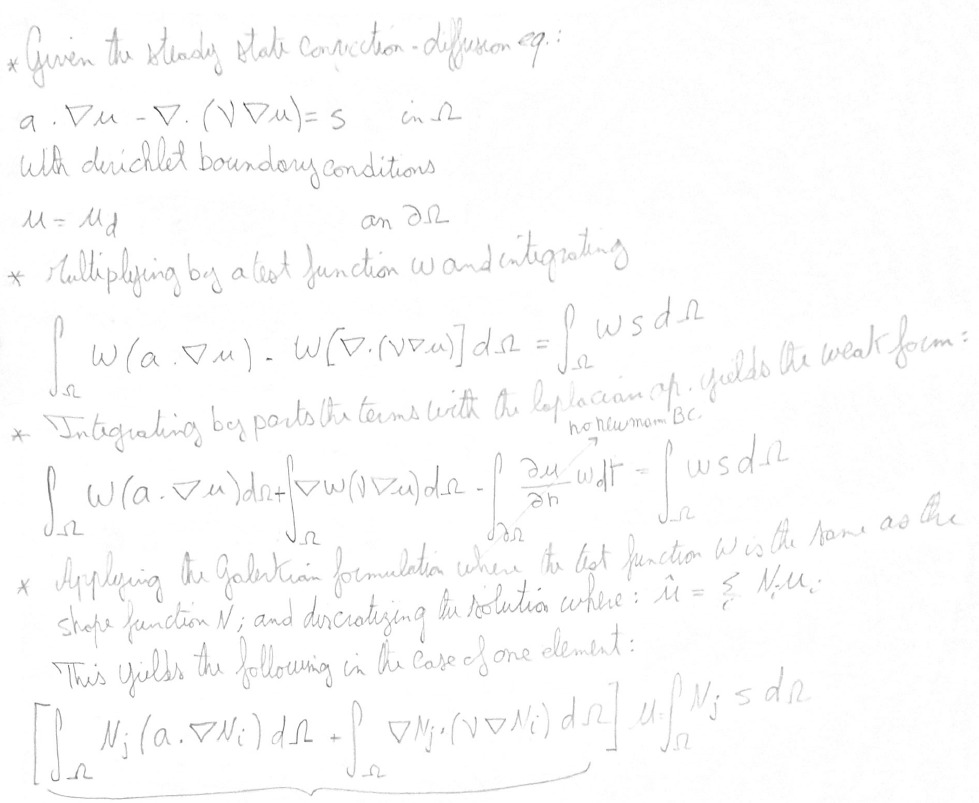 * Given the steady state convection-diffusion eq.:
a . ∇u - ∇. (ν∇u) = s in Ω
with derichlet boundary conditions
u = u_d on ∂Ω
* Multiplying by a test function w and integrating
∫_Ω w(a . ∇u) - w[∇.(ν∇u)] dΩ = ∫_Ω w s dΩ
* Integrating by parts the terms with the laplacian op. yields the weak form:
no neumann BC.
∫_Ω w(a . ∇u) dΩ + ∫_Ω ∇w(ν∇u) dΩ - ∫_∂Ω ∂u/∂n w dΓ = ∫_Ω w s dΩ
* Applying the Galerkian formulation where the test function w is the same as the
shape function N; and discratizing the solution where: û = Σ_i N_i u_i
This yields the following in the case of one element:
[∫_Ω N_j (a . ∇N_i) dΩ + ∫_Ω ∇N_j . (ν∇N_i) dΩ] u = ∫_Ω N_j s dΩ